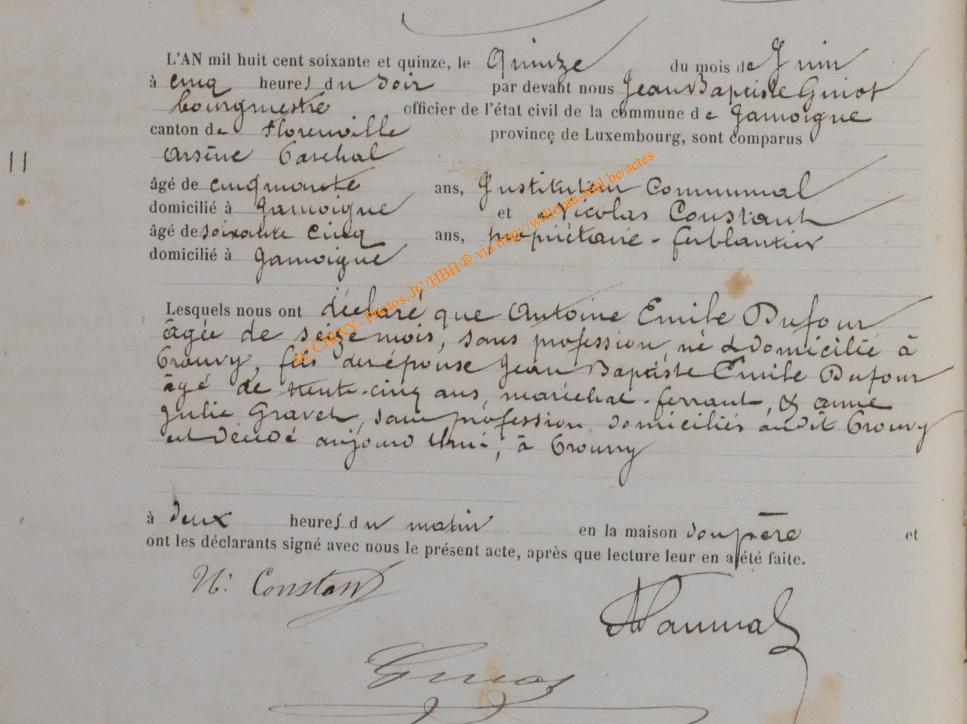 L'AN mil huit cent soixante et quinze, le Quinze du mois de Juin
à cinq heures du soir par devant nous Jean Baptiste Guiot
bourgmestre officier de l'état civil de la commune de Jamoigne
canton de Florenville province de Luxembourg, sont comparus
Arsène
11
âgé de cinquante ans, Instituteur Communal
domicilié à Jamoigne et Nicolas Constant
âgé de soixante cinq ans, propriétaire - ferblantier
domicilié à Jamoigne
de CHINY - Photos:JC/HBH® via http://wallonia-mal.be/actes
Lesquels nous ont déclaré que Antoine Emile Dufour
âgée de seize mois, sans profession, né & domicilié à
Prouvy, fils Jean Baptiste Emile Dufour
âgé de trente-cinq ans, maréchal-ferrant, & Anne
Julie Gravet, sans profession, domiciliés audit Prouvy
est décédé aujourd'hui, à Prouvy
à deux heures du matin en la maison son père et
ont les déclarants signé avec nous le présent acte, après que lecture leur en a été faite.
N: Constant
Guiot